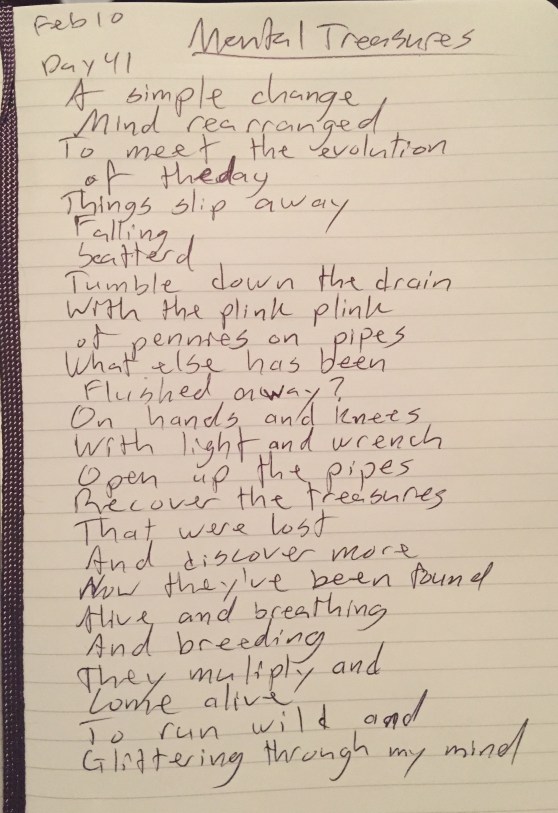 Feb 10
Mental Treasures
Day 41
A simple change
Mind rearranged
To meet the evolution
of theday
Things slip away
Falling
Scatterd
Tumble down the drain
With the plink plink
of pennies on pipes
What else has been
Flushed away?
On hands and knees
With light and wrench
Open up the pipes
Recover the treasures
That were lost
And discover more
Now they've been found
Alive and breathing
And breeding
They muliply and
Come alive
To run wild and
Glittering through my mind